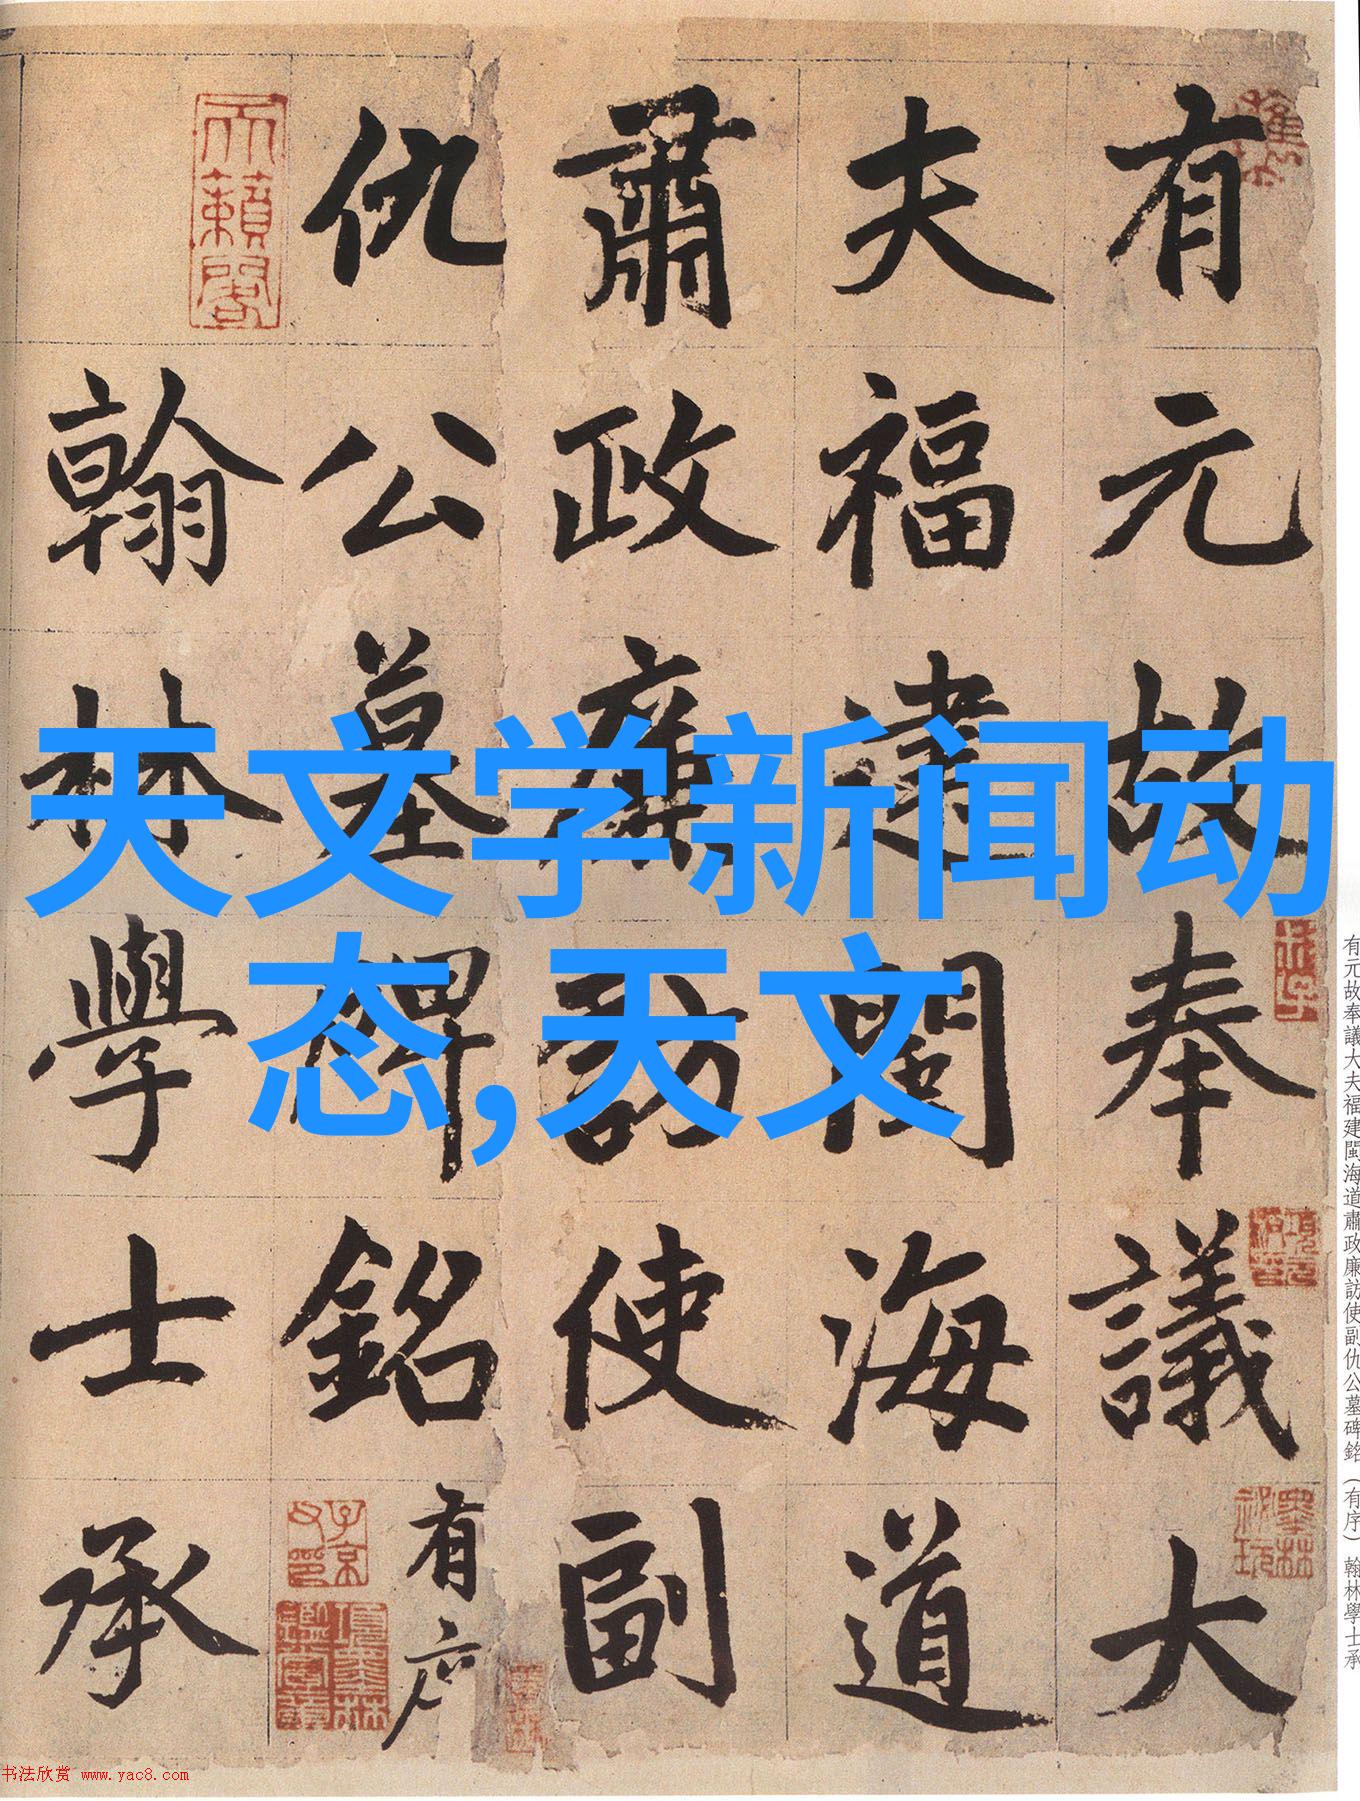 有元故奉議大
夫福建閩海道
肅政廉訪使副
仇公墓碑銘有序
翰林學士承
天籟閣
子京父印
天文学新闻动
态,天文
有元故奉議大夫福建閩海道肅政廉訪使副仇公墓碑銘（有序）翰林學士承
书法欣赏 www.yac8.com